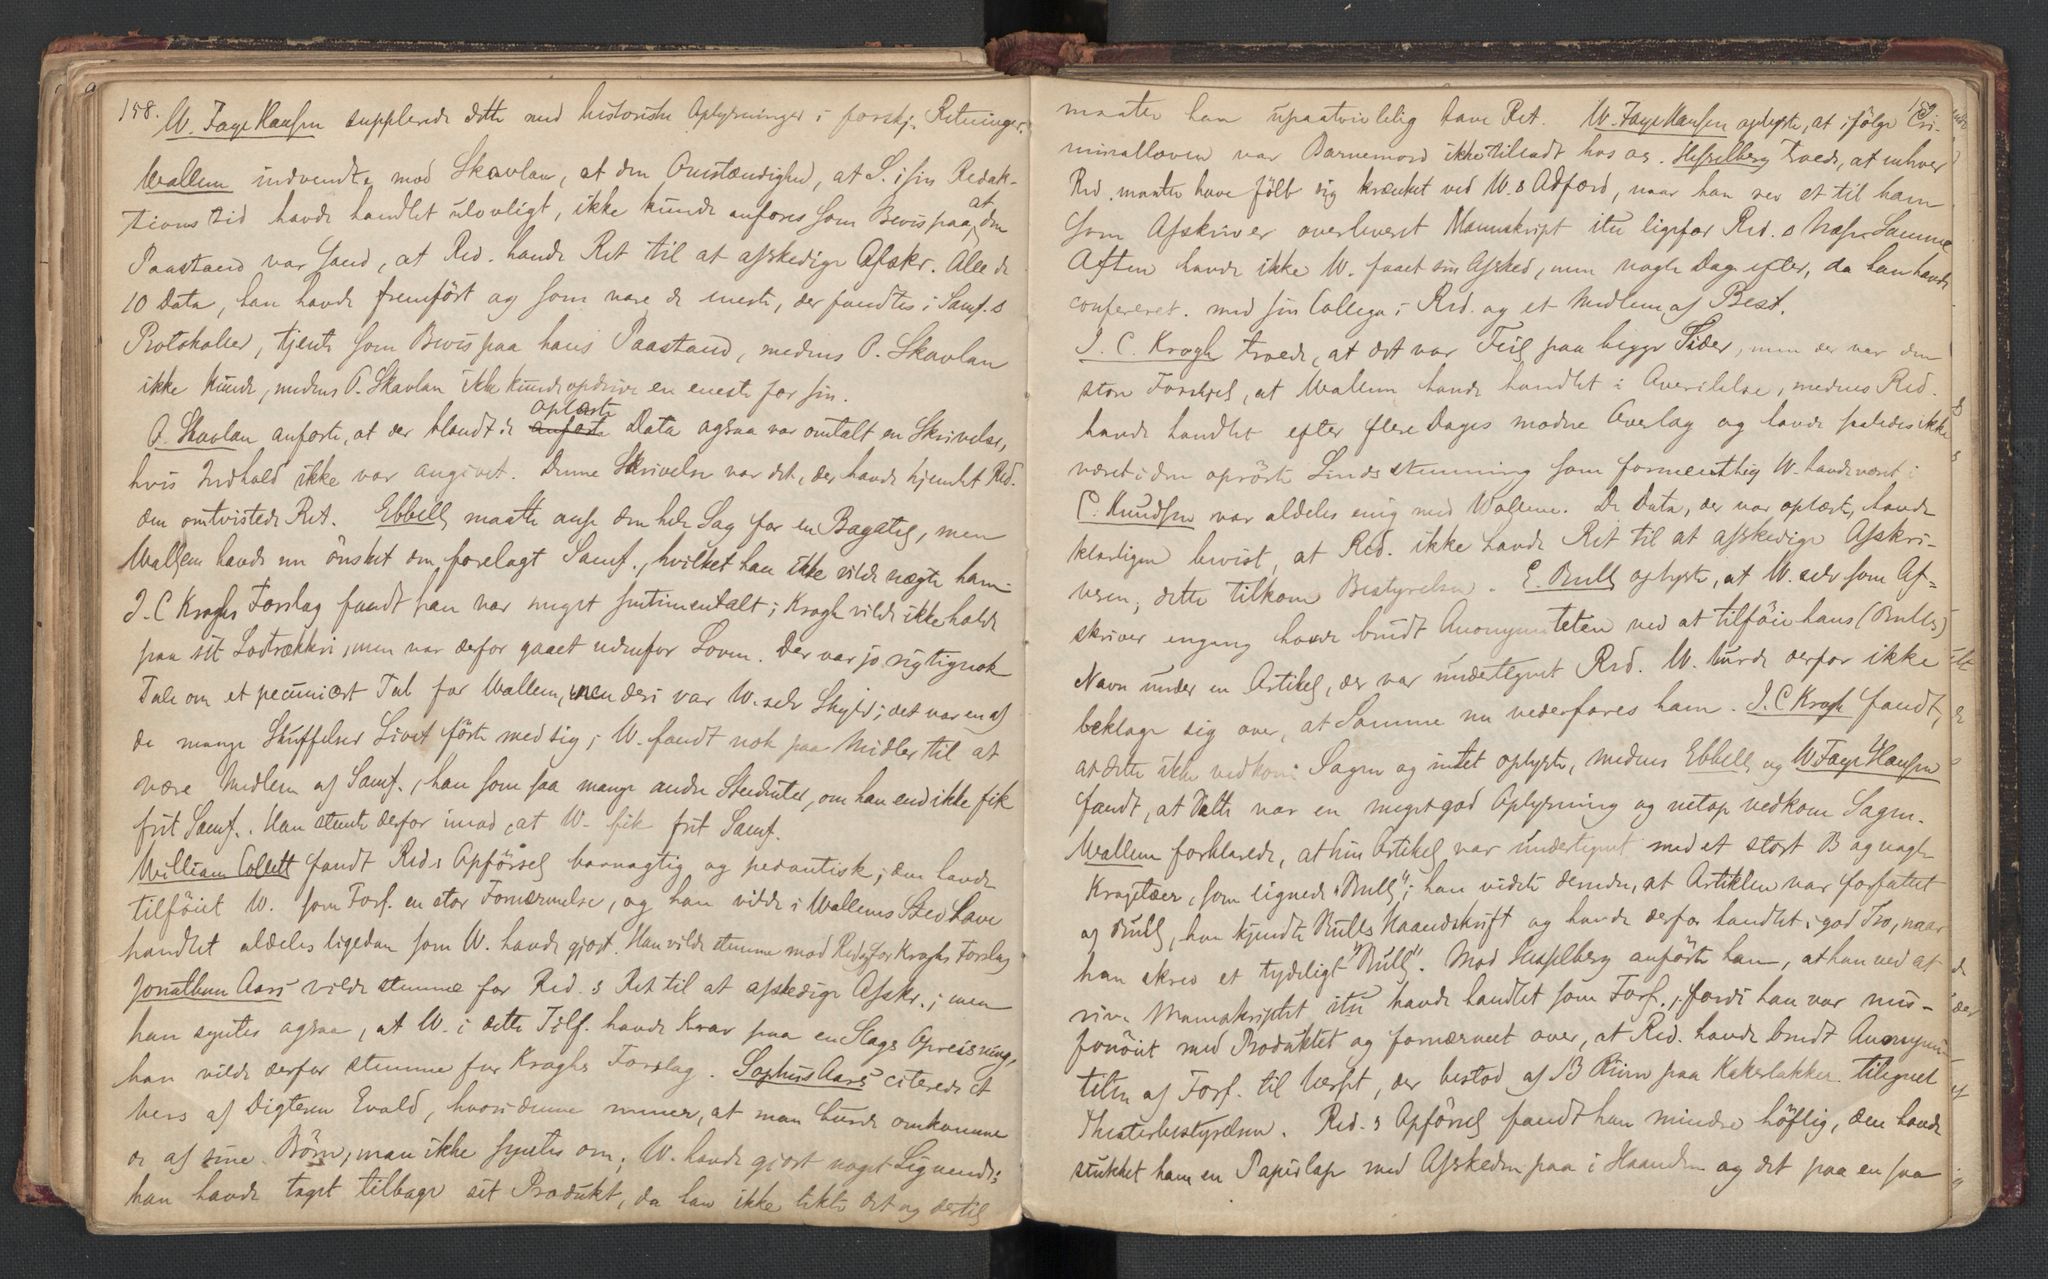 158.
W. Faye Hansen supplerede dette med historiske Oplysninger i forskj. Retninger.
Wallem indvendte mod Skavlan, at den Omstændighed, at S. i sin Redak-
tionstid havde handlet ulovligt, ikke kunde anføres som Bevis paa, at den
Paastand var sand, at Red. havde Ret til at afskedige Afskr. Alle de
10 Data, han havde fremført og som vare de eneste, der fandtes i Samf.s
Protokoller, tjente som Bevis paa hans Paastand, medens O. Skavlan
ikke kunde, medens O. Skavlan ikke kunde opdrive en eneste for sin.
O. Skavlan anførte, at der blandt de anførte oplæste Data ogsaa var omtalt en Skrivelse,
hvis Indhold ikke var angivet. Denne Skrivelse var det, der havde hjemlet Red.
den omtvistede Ret. Ebbell maatte anse den hele Sag for en Bagatel, men
Wallem havde nu ønsket den forelagt Samf., hvilket han ikke vilde nægte ham.
J. C Kroghs Forslag fandt han var meget sentimentalt; Krogh vilde ikke holde
paa sit Lodtrækkeri, men var derfor gaaet udenfor Loven. Der var jo rigtignok
Tale om et pecuniært Tab for Wallem, men deri var W. selv Skyld; det var en af
de mange Skuffelser Livet førte med sig; W. fandt nok paa Midler til at
være Medlem af Samf., han som saa mange andre Studenter, om han end ikke fik
frit Samf. Han stemte derfor imod, at W. fik frit Samf.
William Collett fandt Red.s Opførsel barnagtig og pedantisk; den havde
tilføiet W. som Forf. en stor Fornærmelse, og han vilde i Wallems Sted have
handlet aldeles ligedan som W. havde gjort. Han vilde stemme mod Red. og for Kroghs Forslag
Jonathan Aars vilde stemme for Red.s Ret til at afskedige Afskr.; men
han syntes ogsaa, at W. i dette Tilf. havde Krav paa en Slags Opreisning,
han vilde derfor stemme for Kroghs Forslag. Sophus Aars citerede et
Vers af Digteren Evald, hvori denne mener, at man burde omkomme
de af sine Børn, man ikke syntes om; W. havde gjort noget Lignende;
han havde taget tilbage sit Produkt, da han ikke likte det og dertil
159
maatte han upaatvivlelig have Ret. W. Faye Hansen oplyste, at ifølge Cri-
minalloven var Barnemord ikke tilladt hos os. Hesselberg troede, at enhver
Red. maatte have følt sig krænket ved W.s Adfærd, naar han rev et til ham
som Afskriver overleveret Manuskript itu ligefor Red.s Næse. Samme
Aften havde ikke W. faaet sin Afsked, men nogle Dage efter, da han havde
confereret med sin Collega i Red. og et Medlem af Best.
J. C. Krogh troede, at det var Feil paa begge Sider, men der var den
store Forskjel, at Wallem havde handlet i Overilelse, medens Red.
havde handlet efter flere Dages modne Overlæg og havde saaledes ikke
været i den oprørte Sindsstemning som formentlig W. havde været i
C. Knudsen var aldeles enig med Wallem. De Data, der var oplæst, havde
klarligen bevist, at Red. ikke havde Ret til at afskedige Afskri-
veren; dette tilkom Bestyrelsen. E. Bull oplyste, at W. selv som Af-
skriver engang havde brudt Anonymiteten ved at tilføie hans (Bulls)
Navn under en Artikel, der var undertegnet Red. W. burde derfor ikke
beklage sig over, at Samme nu vederfares ham. J. C Krogh fandt,
at dette ikke vedkom Sagen og intet oplyste, medens Ebbell og W. Faye Hansen
fandt, at dette var en meget god Oplysning og netop vedkom Sagen.
Wallem forklarede, at hin Artikel var undertegnet med et stort B og nogle
Kragetæer, som lignede "Bull"; han vidste desuden, at Artiklen var forfattet
af Bull, han kjendte Bulls Haandskrift og havde derfor handlet i god Tro, naar
han skrev et tydeligt "Bull". Mod Hesselberg anførte han, at han ved at
rive Manuskriptet itu havde handlet som Forf., fordi han var mis-
fornøiet med Produktet og fornærmet over, at Red. havde brudt Anonymi-
teten af Forf. til Verset, der bestod af 13 Rim paa Kakerlakker tilegnet
Theaterbestyrelsen. Red.s Opførsel fandt han mindre høflig, den havde
stukket ham en Papirlap med Afskeden paa i Haanden og det paa en saa